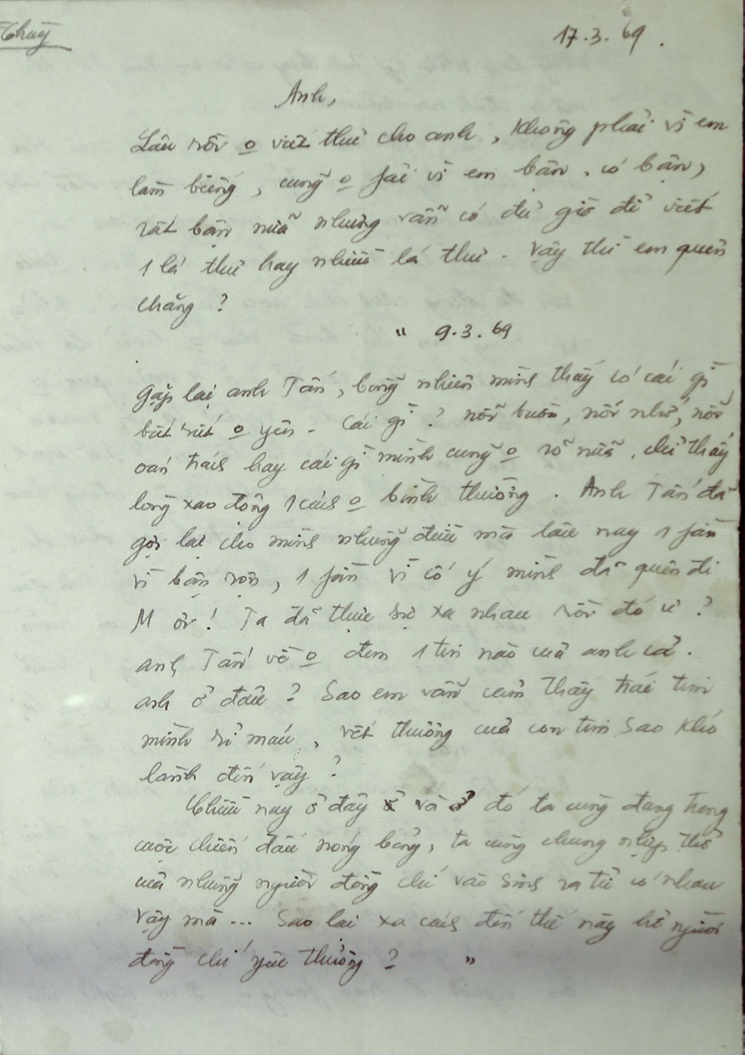 Thùy
17.3.69.
Anh,
Lâu rồi o viết thư cho anh, không phải vì em
làm biếng, cũng o fải vì em bận. có bận,
rất bận nữa nhưng vẫn có đủ giờ để viết
1 lá thư hay nhiều lá thư. Vậy thì em quên
chăng?
" 9.3.69
Gặp lại anh Tấn, bỗng nhiên mình thấy có cái gì
bứt rứt o yên. Cái gì? nỗi buồn, nỗi nhớ, nỗi
oán trách hay cái gì mình cũng o rõ nữa. chỉ thấy
lòng xao động 1 cách o bình thường. Anh Tấn đã
gợi lại cho mình những điều mà lâu nay 1 fần
vì bận rộn, 1 fần vì cố ý mình đã quên đi
M ơi! Ta đã thực sự xa nhau rồi đó ư?
anh Tấn về o đem 1 tin nào của anh cả.
anh ở đâu? Sao em vẫn cảm thấy trái tim
mình rỉ máu, vết thương của con tim sao khó
lành đến vậy?
Chiều nay ở đây và ở đó ta cùng đang trong
cuộc chiến đấu nóng bỏng, ta cùng chung nhịp thở
của những người đồng chí vào sinh ra tử có nhau
vậy mà ... Sao lại xa cách đến thế này hở người
đồng chí yêu thương? "